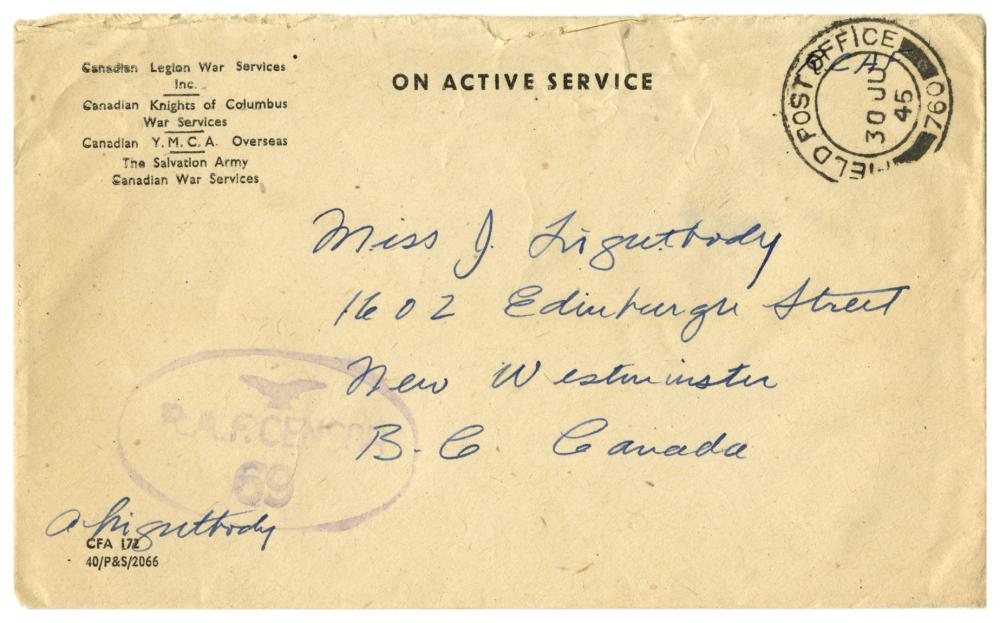 Canadian Legion War Services
Inc.
Canadian Knights of Columbus
War Services
Canadian Y.M.C.A. Overseas
The Salvation Army
Canadian War Services
ON ACTIVE SERVICE
FIELD POST OFFICE
760
30 JU
45
RCAF
Miss J. Lightbody
1602 Edinburgh Street
New Westminster
B.C. Canada
R.A.F. CENSOR
69
A Lightbody
CFA 172
40/P&S/2066